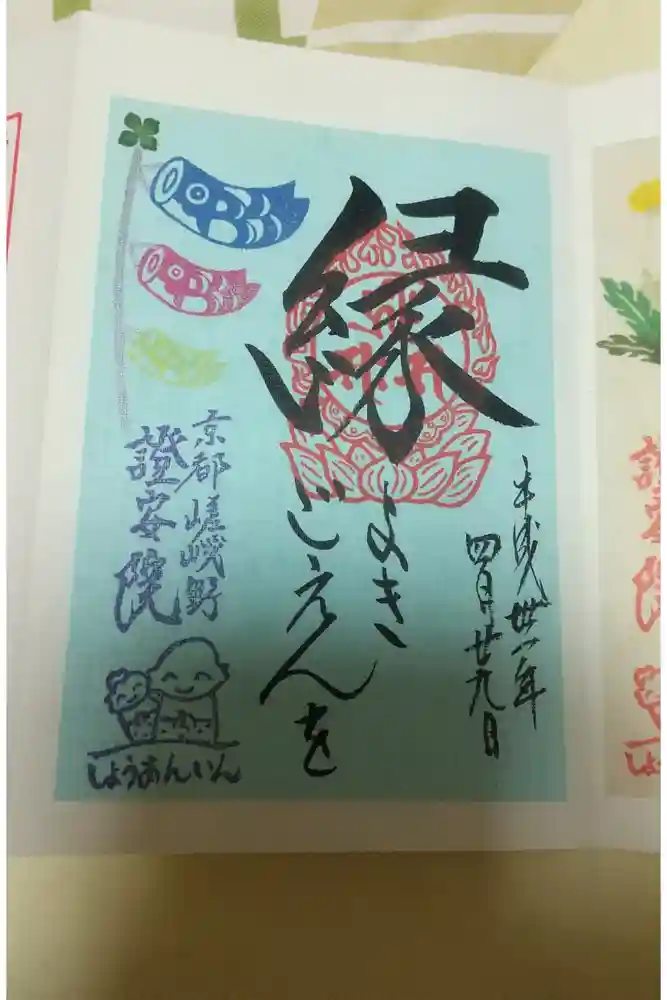 平成卅一年
四月廿九日
縁
よき
ごえんを
京都 嵯峨野
證安院
しょうあんいん